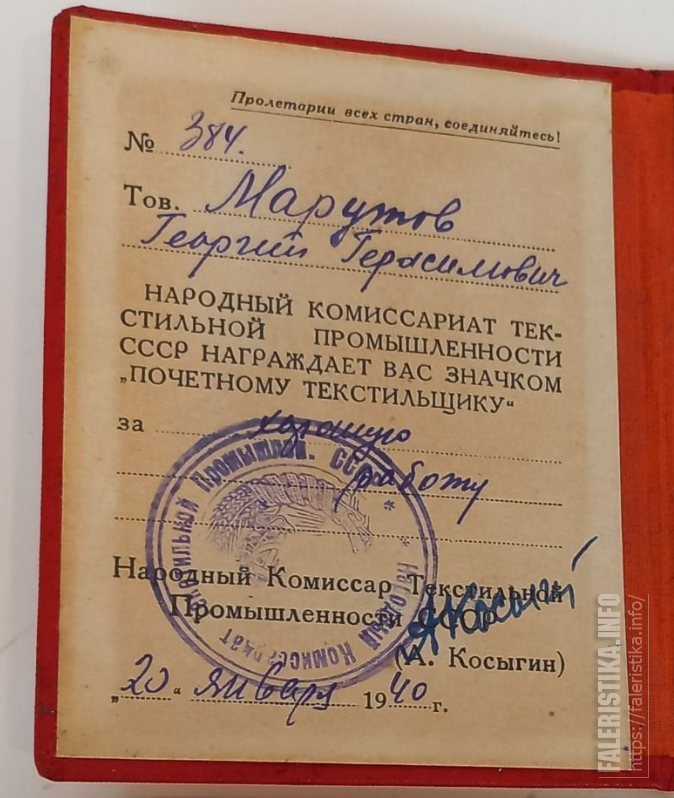 Пролетарии всех стран, соединяйтесь!
№ 384.
Тов. Марутов
Георгий Герасимович
НАРОДНЫЙ КОМИССАРИАТ ТЕК-
СТИЛЬНОЙ ПРОМЫШЛЕННОСТИ
СССР НАГРАЖДАЕТ ВАС ЗНАЧКОМ
„ПОЧЕТНОМУ ТЕКСТИЛЬЩИКУ“
за хорошую
работу
Народный Комиссариат Текстильной Промышлен. СССР
Народный Комиссар Текстильной
Промышленности СССР
АКосыгин
(А. Косыгин)
„20“ января 1940 г.
FALERISTIKA.INFO
https://faleristika.info/